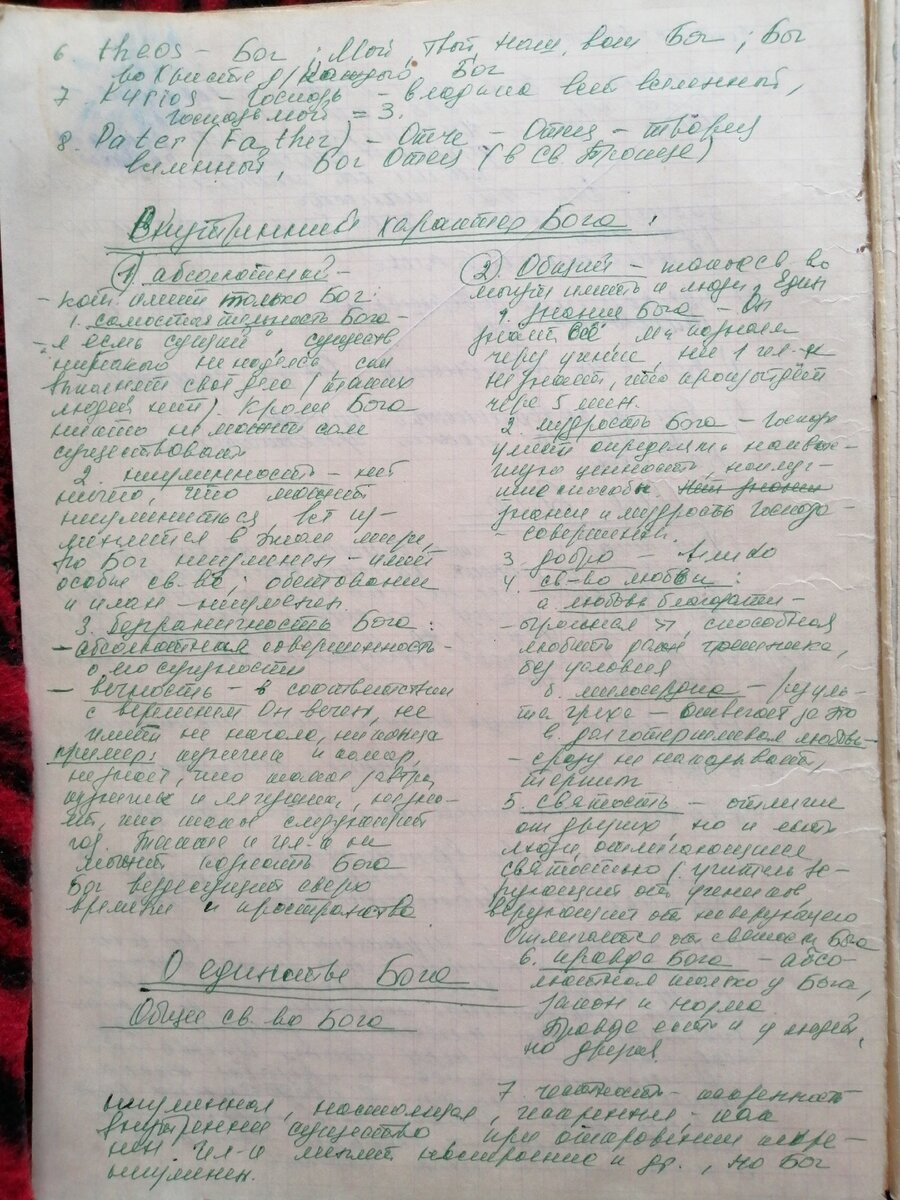 6 theos – Бог ; Мой, твой, наш, ваш Бог ; Бы
Бог
7 Kyrios – Господь – владыка всей вселенный,
господь мой = 3.
8. Pater (Father) – Отче – Отец – творец
вселенный, Бог Отец (в св. Троице)
Внутренний характер Бога.
1) абсолютный –
– кот. имеет только Бог:
1. самостоятельность Бога –
– "я есть сущий", существ
никого не надеясь, сам
выполняет своё дело (таких
людей нет). Кроме Бога
никто не может сам
существовать
2. неизменность – нет
ничего, что может
неизмениться, всё из-
меняется в этом мире,
но Бог неизменен – имеет
особые св-ва; обетование
и план – неизменен.
3. безграничность Бога:
– абсолютная совершенность –
о его сущности
– вечность – в соответствии
с временем Он вечен, не
имеет не начала, ни конца
пример: кузнечик и комар,
не знает, что такое завтра,
кузнечик и лягушка, не зна-
ет, что такое следующий
год. Также и чел-к не
может познать Бога
Бог вездесущий сверх
времени и пространства
О единстве Бога
Общее св-во Бога
2) Общий – такое св-во
могут иметь и люди. Един
1. знание Бога – Он
знает всё мы познаём
через учение, ни 1 чел-к
не знает, что произойдёт
через 5 мин.
2. мудрость Бога – Господь
умеет определять наивыс-
шую ценность, наилуч-
ший способ. Нет знания
знание и мудрость Господа –
– совершенен.
3. добро – велико
4. св-во любви:
а любовь благодати –
– огромная, способная
любить даже грешника,
без условия
б. милосердие – резуль-
тат греха – отвечает за это
в. долготерпеливая любовь –
– сразу не наказывает,
терпит
5. святость – отличие
от других, но и есть
люди, отличающиеся
святостью (учитель ве-
рующий от ученика,
верующий от неверующего
Отличается от святости Бога
6. правда Бога – абсо-
лютная только у Бога,
закон и норма
Правда есть и у людей,
но другая.
7 честность – искренность
неизменная, настоящая, искренняя – как
внутреннее существо при откровении искре-
нен. Чел-к меняет настроение и др., но Бог
неизменен.